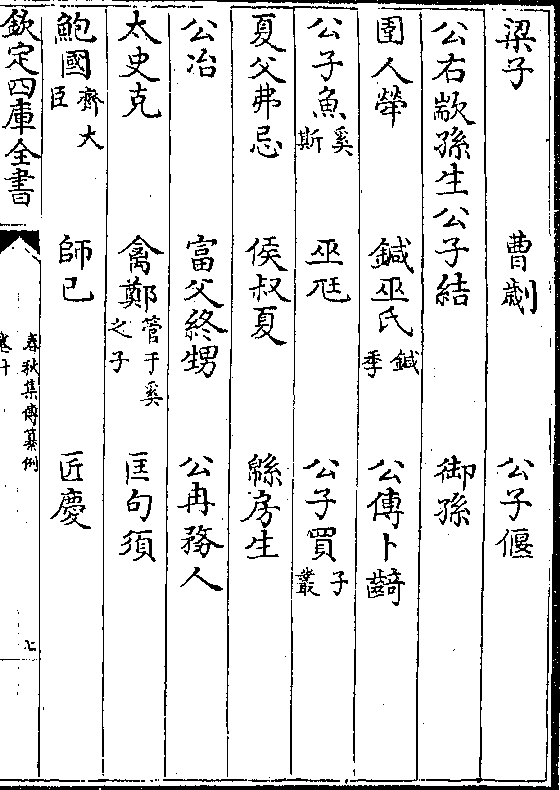 梁子 曹劌 公子偃
公右歂孫生公子結 御孫
圉人犖 鍼巫氏鍼季 公傅卜齮
公子魚奚斯 巫尫 公子買子叢
夏父弗忌 侯叔夏 緜房生
公冶 富父終甥 公冉務人
太史克 禽鄭管于奚之子 匡句須
鮑國齊大臣 師己 匠慶
欽定四庫全書
春秋集傳纂例
卷十
七